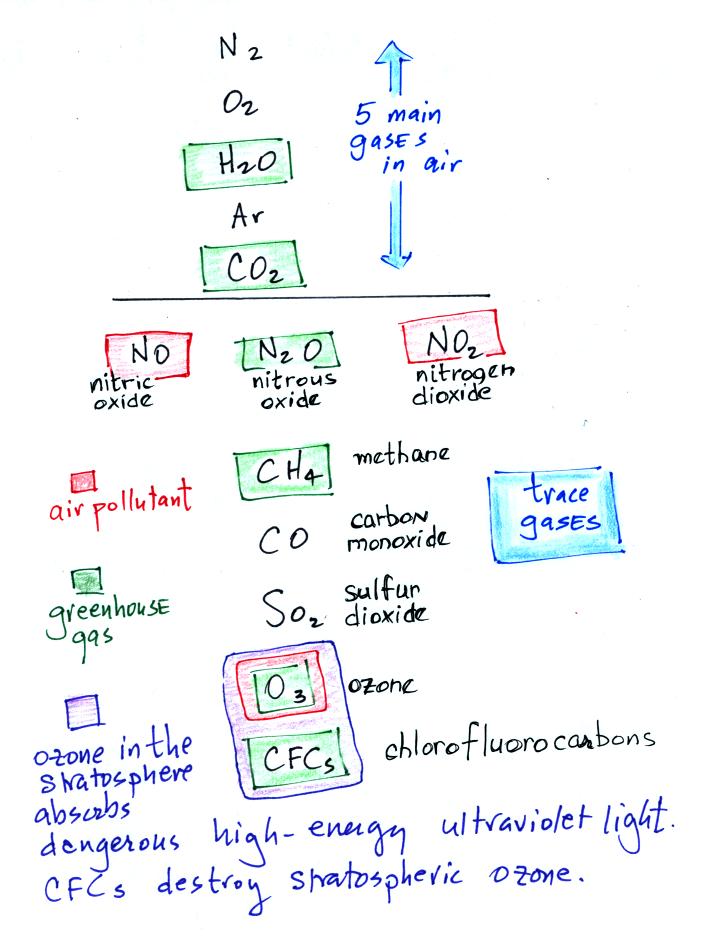 N2
O2
5 main
gases
in air
H2O
Ar
CO2
NO
nitric
oxide
N2O
nitrous
oxide
NO2
nitrogen
dioxide
CH4 methane
air pollutant
trace
gases
CO carbon
monoxide
greenhouse
gas
SO2 sulfur
dioxide
O3 ozone
CFCs chlorofluorocarbons
ozone in the
stratosphere
absorbs
dangerous high-energy ultraviolet light.
CFCs destroy stratospheric ozone.